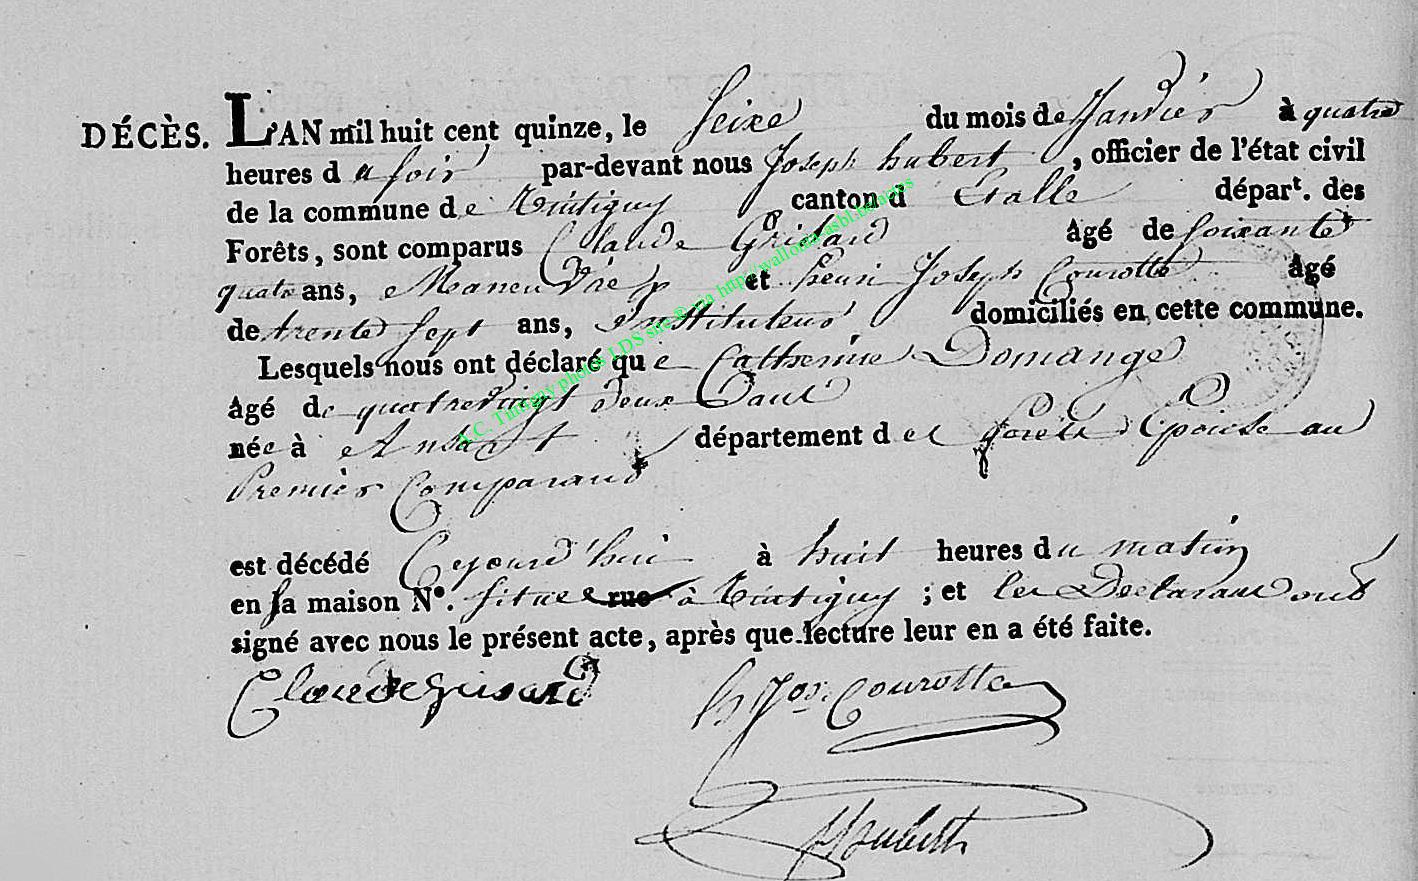 DÉCÈS. L'AN mil huit cent quinze, le Seize du mois de Janvier à quatre
heures du soir par-devant nous Joseph hubert, officier de l'état civil
de la commune de Tintigny canton d'Etalle départ. des
Forêts, sont comparus Claude Grisard âgé de soixante
quatre ans, Maneuvre et henri Joseph Courotte âgé
de trente sept ans, Instituteur domiciliés en cette commune.
Lesquels nous ont déclaré que Catherine Domange
âgé de quatrevingt deux ans
née à Ansart département des forêts Epouse au
Premier Comparant
est décédé Cejourd'hui à huit heures du matin
en sa maison No. située rue à Tintigny ; et les Declarans ont
signé avec nous le présent acte, après que lecture leur en a été faite.
Claude grisard h Jos. Courotte
J hubert
A.C. Tintigny photos LDS site ® via http://wallonia-asbl.be/actes